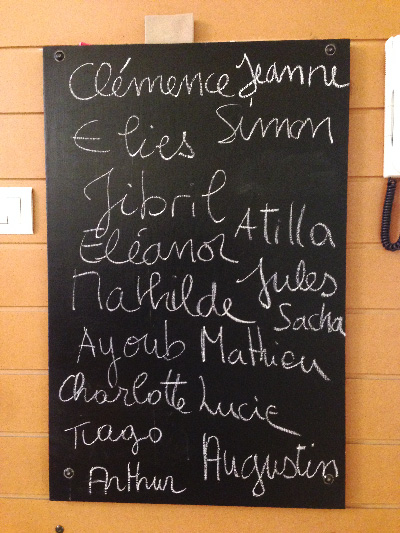 Clémence Jeanne
Elies Simon
Jibril
Atilla
Eléanor
Jules
Mathilde
Sacha
Ayoub Mathieu
Charlotte Lucie
Tiago
Augustin
Arthur